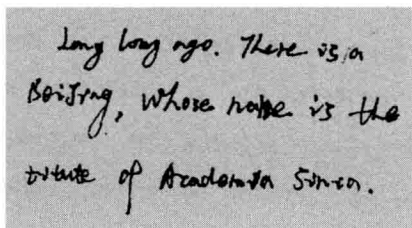 Long long ago. There is a
BeiJing, whose name is the
titute of Academia Sinica.